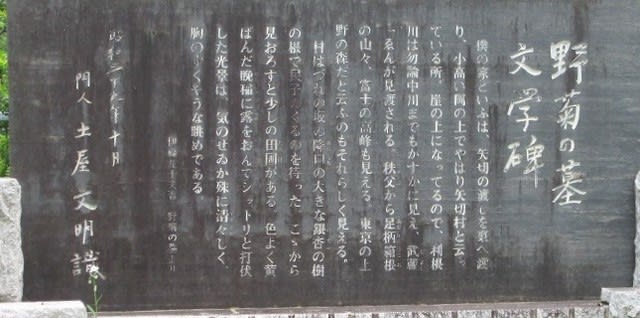 野菊の墓
文学碑
僕の家といふは、矢切の渡しを東へ渡
り、小高い岡の上でやはり矢切村と云っ
ている所。崖の上になってるので、利根
川は勿論中川までもかすかに見え、武蔵
一ゑんが見渡される。秩父から足柄箱根
の山々、富士の高峰も見える。東京の上
野の森だと云ふのもそれらしく見える。
村はづれの坂の降口の大きな銀杏の樹
の根で民子のくるのを待った。こゝから
見おろすと少しの田圃がある。色よく黄
ばんだ晩稲に露をおんでシットリと打伏
した光景は、気のせゐか殊に清々しく、
胸のすくやうな眺めである。
伊藤左千夫 野菊の墓より
昭和三十九年十月
門人 土屋文明識